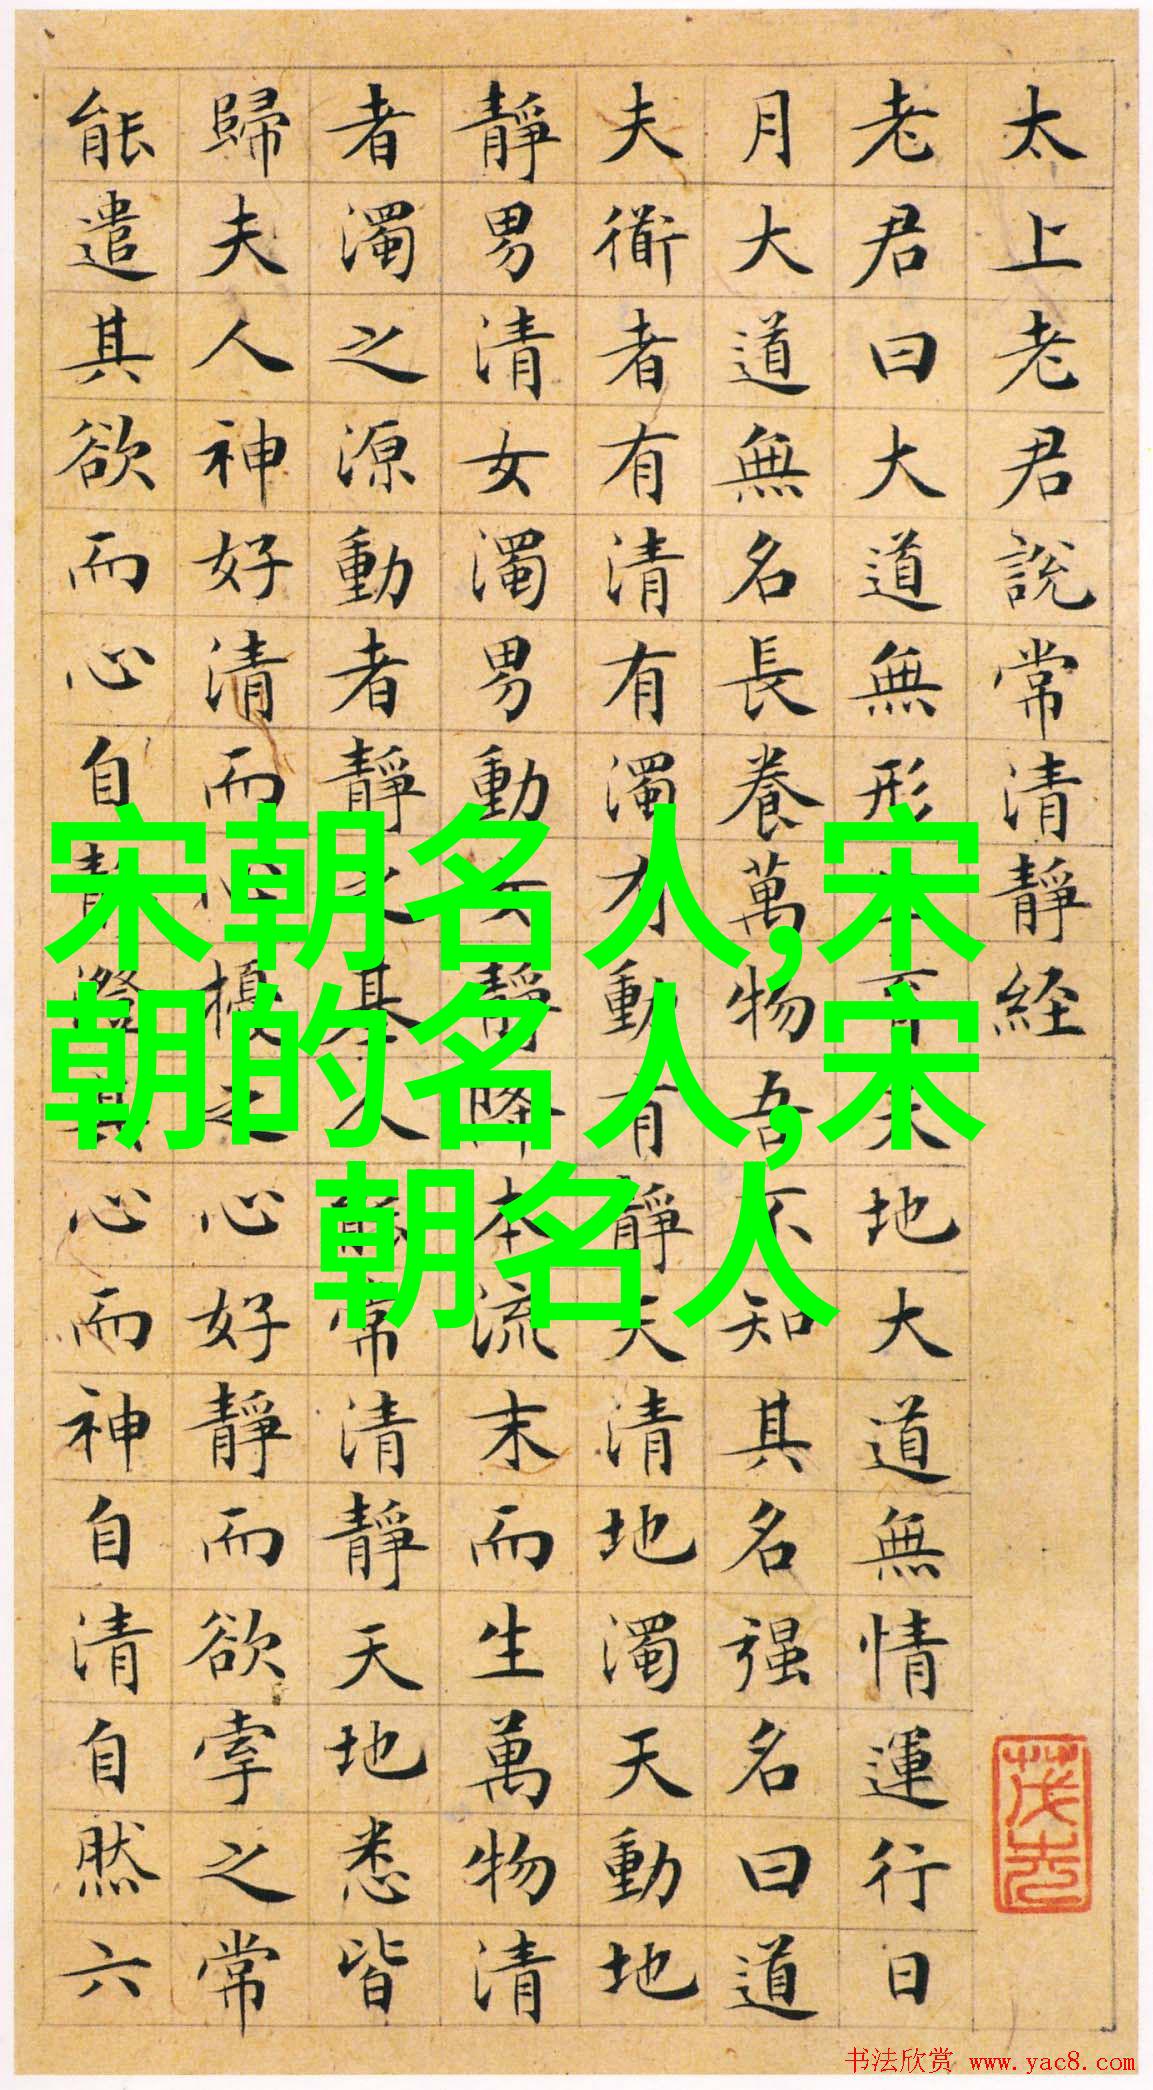 太上老君說常清靜経
老君曰大道無形生育天地大道無情運行日
月大道無名長養萬物吾不知其名强名曰道
夫衜者有清有濁有動有靜天清地濁天動地
靜男清女濁男動女靜降本流末而生萬物清
者濁之源動者靜之基人能常清靜天地悉皆
歸夫人神好清而心擾之心好靜而欲牽之常
能遣其欲而心自靜澄其心而神自清自然六
宋朝名人,宋
朝的名人,宋
朝名人
书法欣赏 www.yac8.com